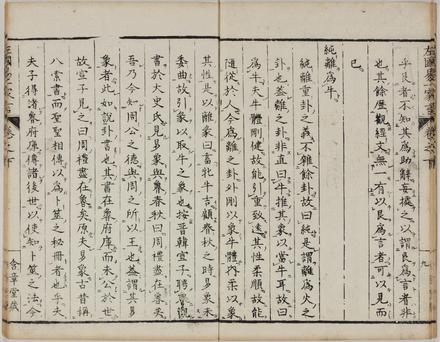 乎艮者不知其為助辭妄據之以謂艮為言者非
也其餘歷觀經文無一有以艮為言者可以見而
已
純離為牛
純離重卦之義不雜餘卦故曰純是謂離為火之
卦也蓋離之卦非直曰牛推其象以當牛耳故曰
為牛夫牛體剛健故能引重致遠其性柔順故能
隨從於人今為離之卦外剛以象牛體內柔以象
其性是以離象曰畜牝牛吉顧春秋之時易象未
委曲故引象以取牛之象也按晉韓宣子聘魯觀
書於大史氏見易象與魯春秋曰周禮盡在魯矣
吾乃今知周公之德與周之所以王也蓋謂其易
象者此如說卦書也其書在魯府庫而未公於世
故宣子見之曰周禮盡在魯矣原夫易象古昔稱
八索書而聖聖相傳以為卜筮之秘冊者也乎夫
夫子得諸魯府原傳諸後世以使知卜筮之法今
九
含章堂藏